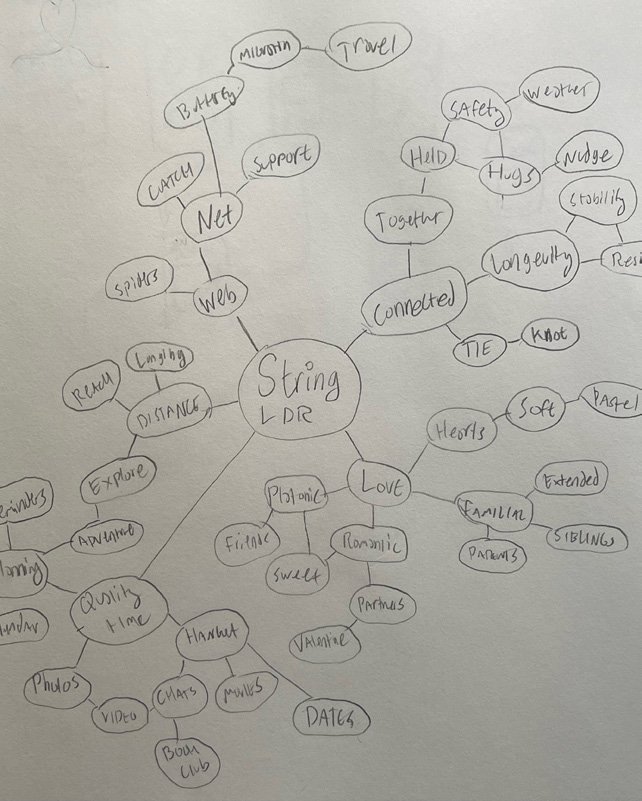 Migration
Travel
Butterfly
Weather
Safety
Held
Hugs
Nudge
CATCH
Support
Net
Together
Stability
Longevity
Resi
Spiders
Web
Connected
TIE
Knot
String
LDR
Longing
REACH
DISTANCE
Hearts
Soft
Pastel
Explore
Platonic
LOVE
Extended
FAMILIAL
SIBLINGS
PARENTS
Adventure
Friends
Romantic
Sweet
Quality
time
Hangout
Partners
Valentine
Photos
VIDEO
CHATS
MOVIES
DATES
Book
Club